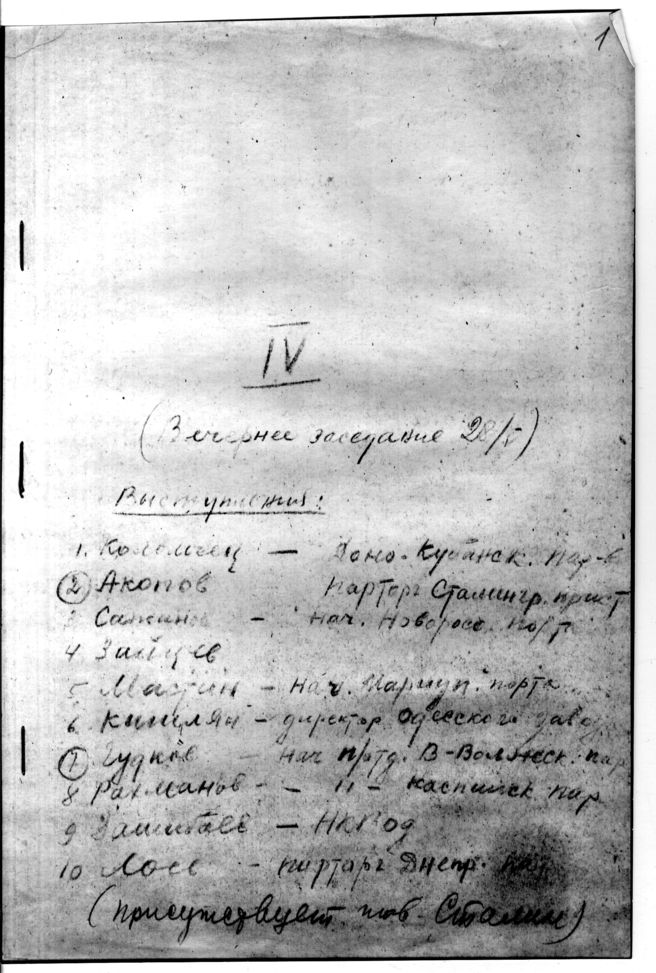 1
IV
(Вечернее заседание 28/V)
Выступления:
1. Коломиец — Доно-Кубанск. пар-в
2 Акопов Парторг Сталингр. прист
3 Сажинов — Нач. Новоросс. порт
4 Зайцев
5 Мастин — Нач. Мариуп. порта
6 Кишлян — директор Одесского заво
7 Гудков — Нач п/отд. В-Волжск. пар
8 Рахманов - - " - Каспийск пар
9 — НКВод
10 Лосс — парторг Днепр.
(присутствует тов. Сталин)